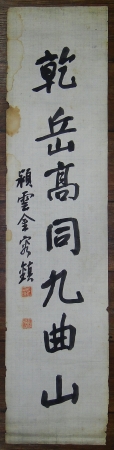 乾岳高同九曲山
穎雲金容鎮